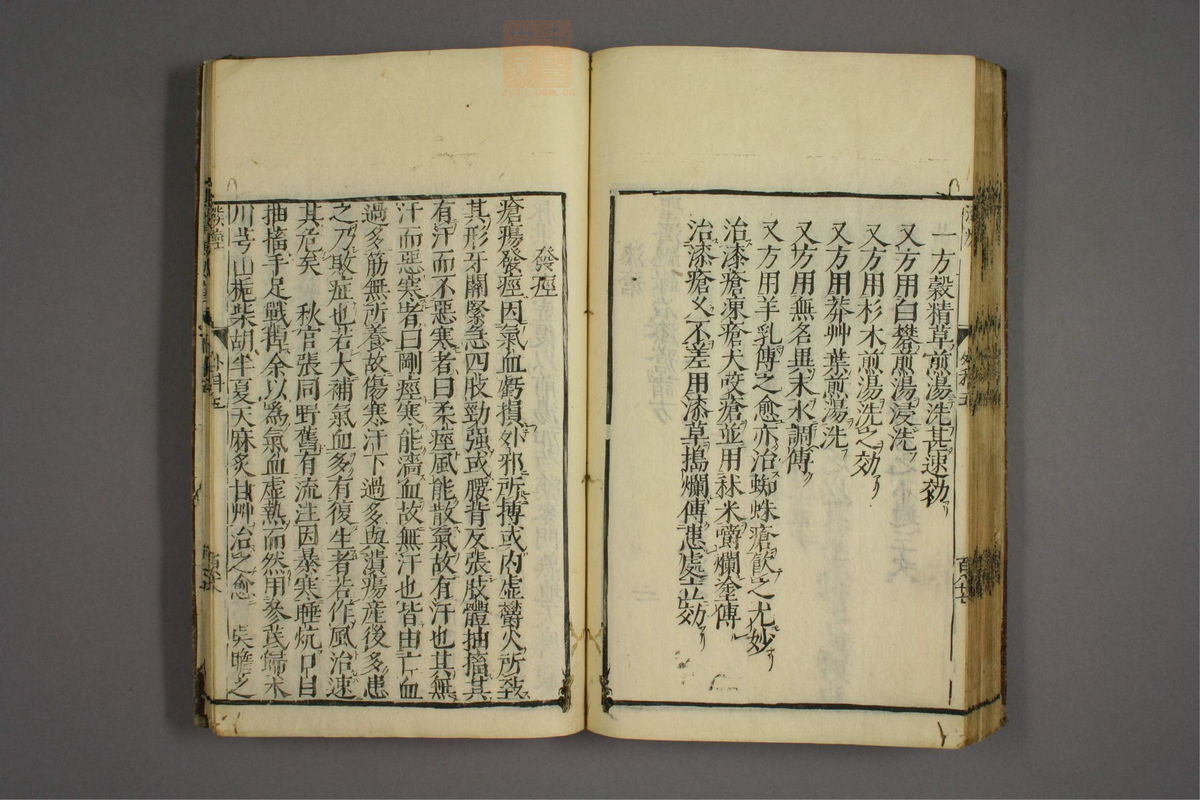 一方穀精草煎湯洗其速効
又方用白礬煎湯浸洗
又方用杉木煎湯洗之効
又方用莽艸葉煎湯洗
又方用無名異末水調傅
又方用羊乳傅之愈亦治蜘蛛瘡飮之尤妙
治漆瘡凍瘡犬咬瘡並用秫米嚼爛塗傅
治漆瘡久不差用漆草搗爛傅患處立効
發痙
瘡瘍發痙因氣血虧損外邪所搏或內虛欝火所致
其形牙關緊急四肢勁強或腰背反張肢體抽搐其
有汗而不惡寒者曰柔痙風能散氣故有汗也其無
汗而惡寒者曰剛痙寒能濇血故無汗也皆由亡血
過多筋無所養故傷寒汗下過多與潰瘍産後多患
之乃敗症也若大補氣血多有復生者若作風治速
其危矣 秋官張同野舊有流注因暴寒睡炕口目
抽搐手足戰掉余以爲氣血虛熱而然用參芪歸朮
川芎山梔柴胡半夏天麻炙甘艸治之愈 吳瞻之